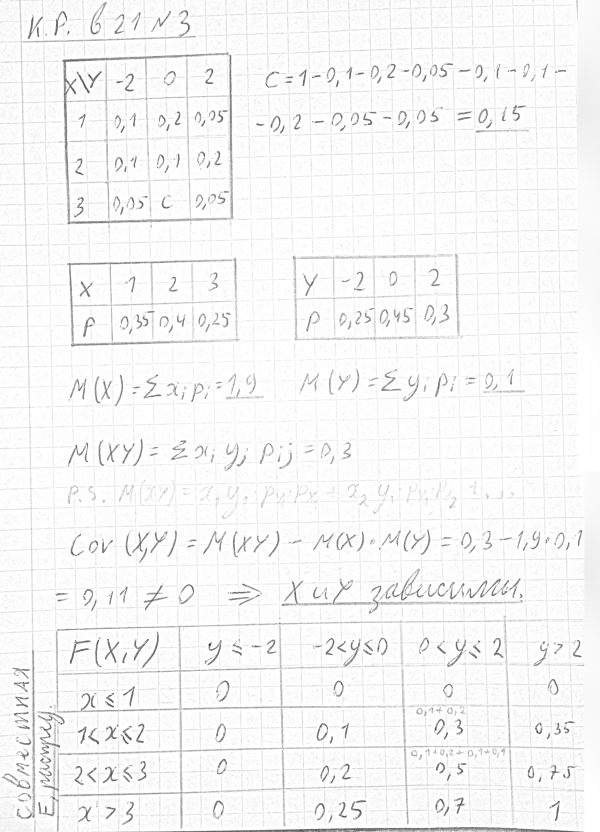 К.Р. в 21 N 3
X\Y -2 0 2
1 0,1 0,2 0,05
2 0,1 0,1 0,2
3 0,05 C 0,05
C = 1-0,1-0,2-0,05-0,1-0,1-
-0,2-0,05-0,05 = 0,15
X 1 2 3
P 0,35 0,4 0,25
Y -2 0 2
P 0,25 0,45 0,3
M(X) = Σ xi pi = 1,9 M(Y) = Σ yi pi = 0,1
M(XY) = Σ xi yj pij = 0,3
P.S. M(XY) = x1 y1 · py · px + x2 y1 · py · p2 + ...
Cov (X,Y) = M(XY) - M(X)·M(Y) = 0,3-1,9·0,1
= 0,11 ≠ 0 ⇒ X и Y зависимы.
совместная
F, распред.
F(X,Y) y ≤ -2 -2<y≤0 0<y≤2 y>2
x ≤ 1 0 0 0 0
0,1+0,2
1<x≤2 0 0,1 0,3 0,35
0,1+0,2+0,1+0,1
2<x≤3 0 0,2 0,5 0,75
x > 3 0 0,25 0,7 1